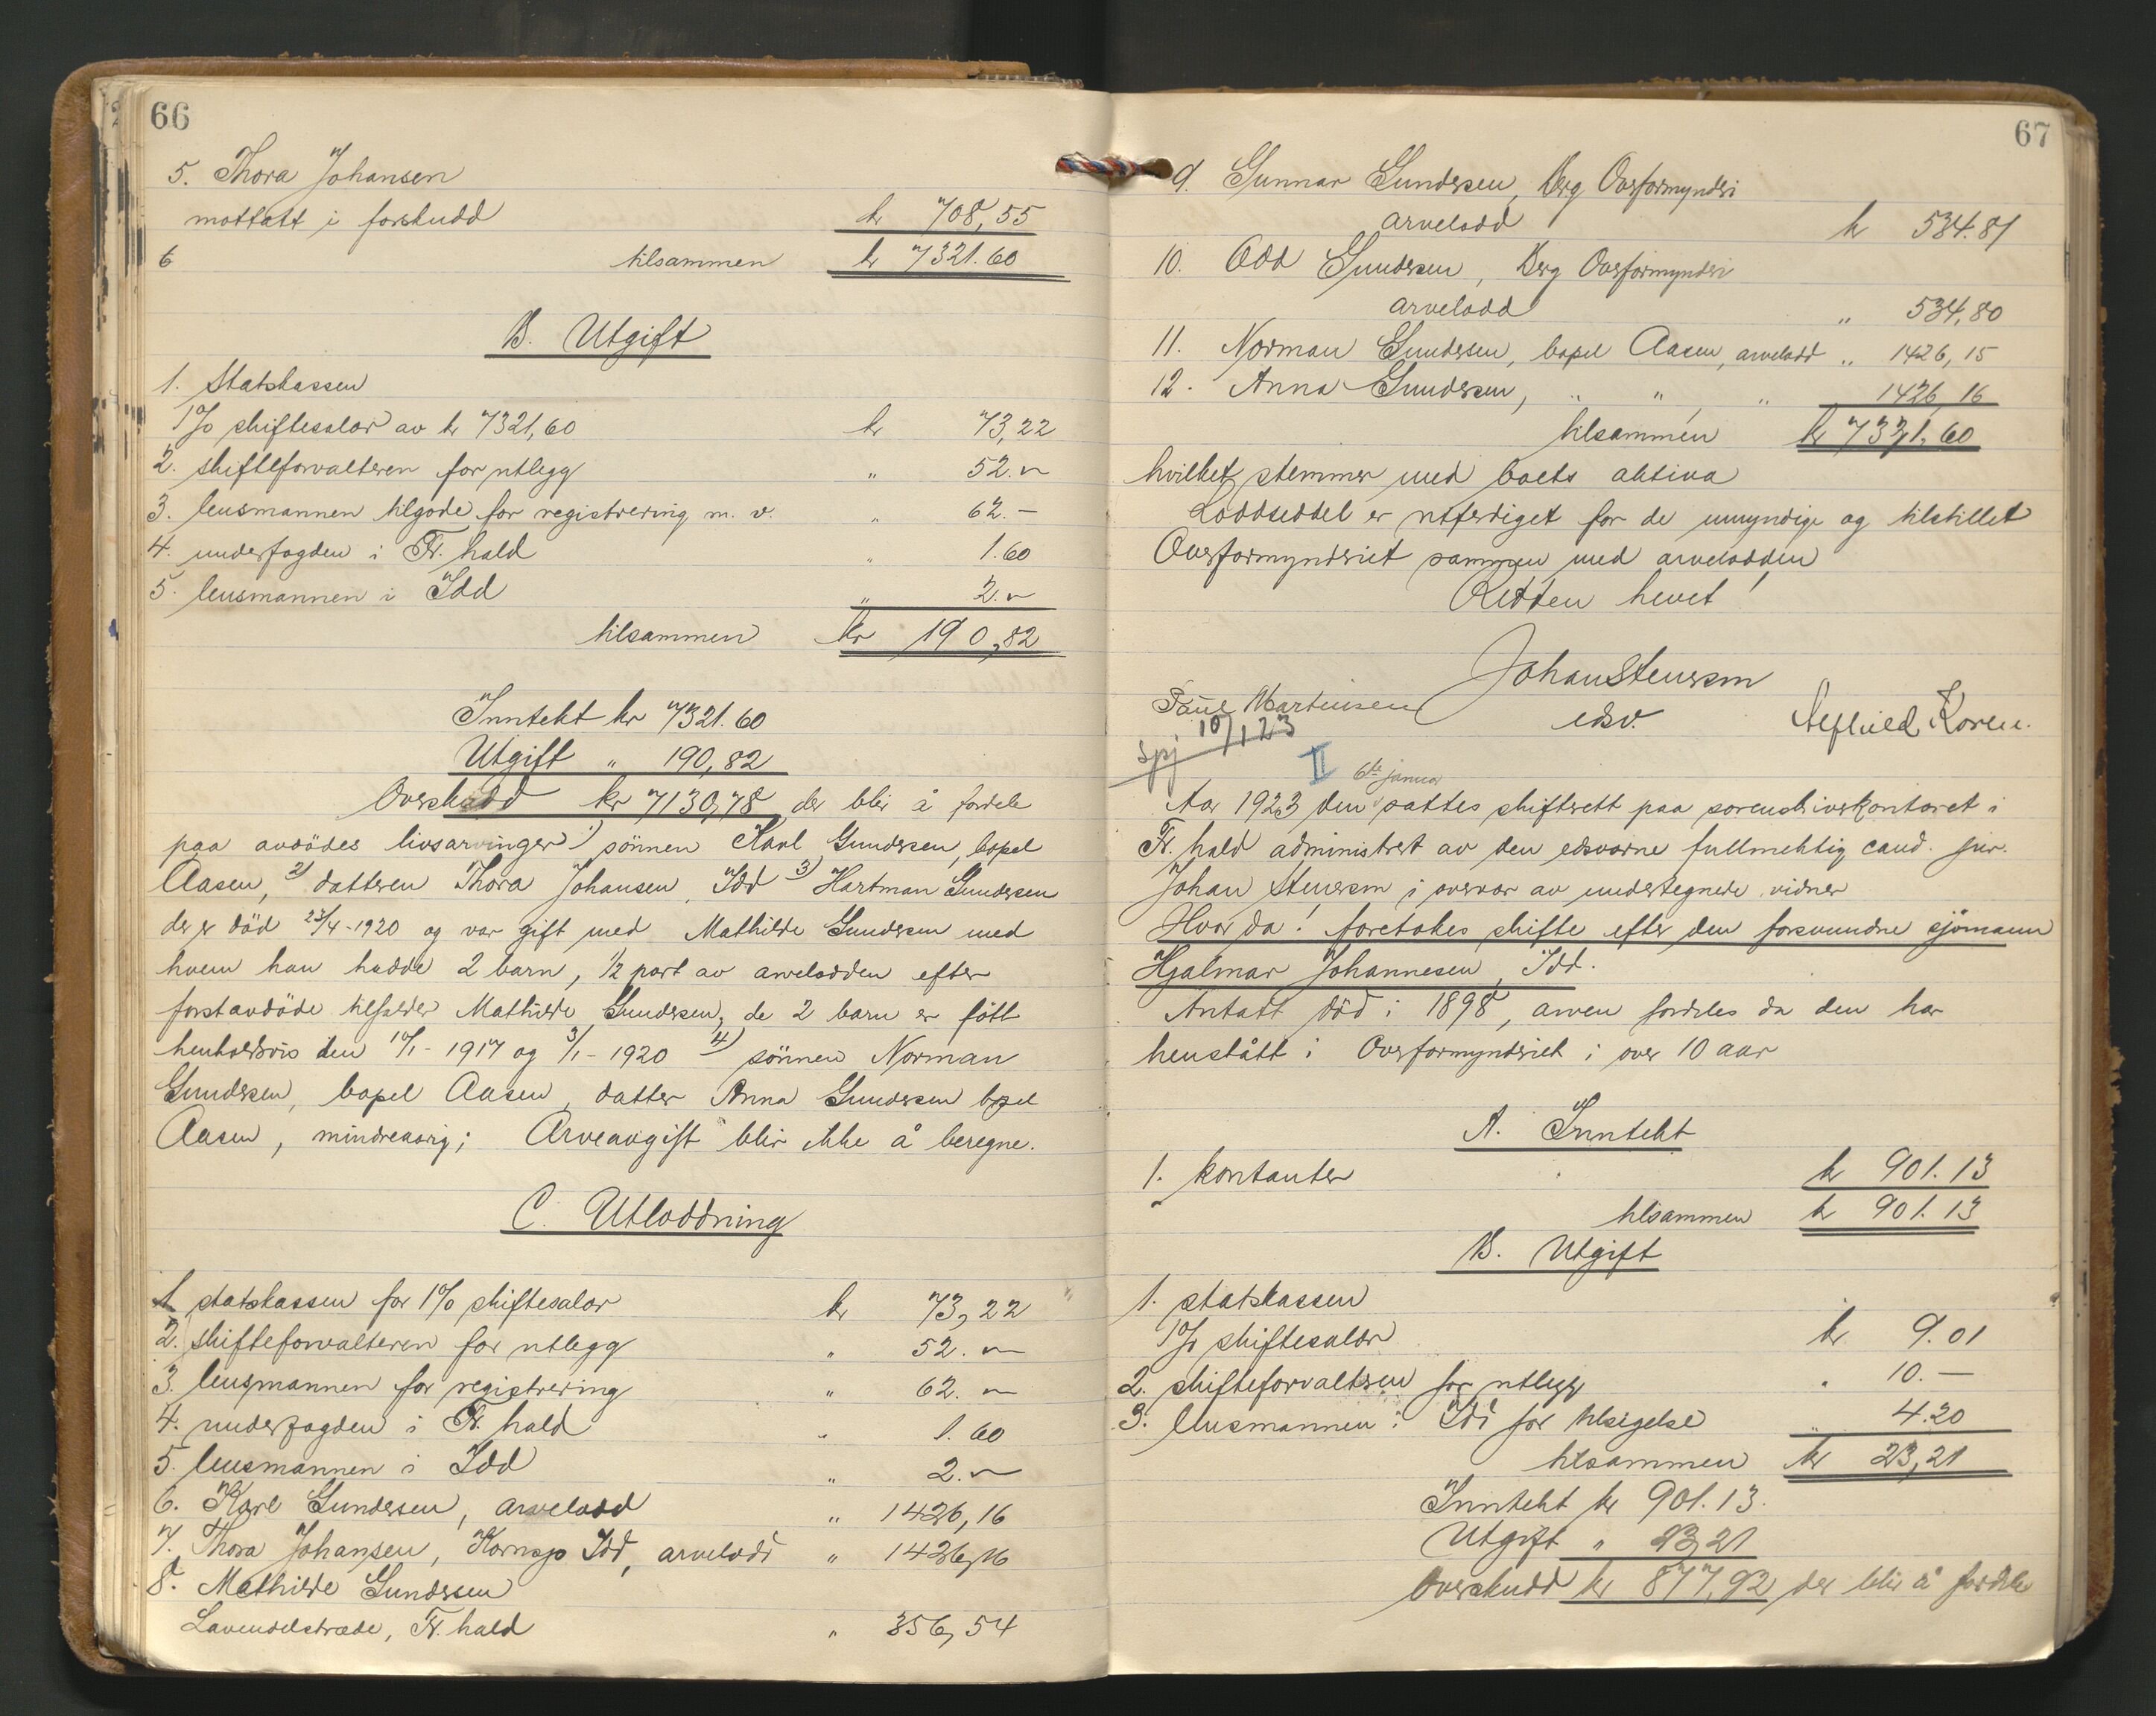 66
5. Thora Johansen
mottatt i forskudd kr 708,55
6 tilsammen kr 7321.60
B. Utgift
1. Statskassen
1% skiftesalær av kr 7321,60 kr 73,22
2. skifteforvalteren for utlegg " 52.–
3. lensmannen tilgode for registrering m. v. " 62.–
4. underfogden i Fr. hald " 1.60
5. lensmannen i Idd " 2.–
tilsammen kr 190,82
Inntekt kr 7321.60
Utgift " 190,82
Overskudd kr 7130,78 der blir å fordele
paa avdödes livsarvinger 1) sönnen Karl Gundersen, bopel
Aasen, 2) datteren Thora Johansen, Idd 3) Hartman Gundersen
der er död 23/4-1920 og var gift med Mathilde Gundersen med
hvem han hadde 2 barn, 1/2 part av arvelodden efter
forstavdöde tilfalder Mathilde Gundersen, de 2 barn er fött
henholdsvis den 17/1-1917 og 3/1-1920 4) sönnen Norman
Gundersen, bopel Aasen, datter Anna Gundersen bopel
Aasen, mindreaarig; Arveavgift blir ikke å beregne.
C. Utloddning
1 statskassen for 1% skiftesalær kr 73,22
2. skifteforvalteren for utlegg " 52.–
3. lensmannen for registrering " 62.–
4. underfogden i Fr. hald " 1.60
5. lensmannen i Idd " 2.–
6. Karl Gundersen, arvelodd " 1426,16
7. Thora Johansen, Kornsjø Idd, arvelodd " 1426,16
8. Mathilde Gundersen
Lavendelstræde, Fr. hald " 356,54
67
9. Gunnar Gundersen, Berg Overformynderi
arvelodd kr 534.81
10. Odd Gundersen, Berg Overformynderi
arvelodd " 534,80
11. Norman Gundersen, bopel Aasen, arvelodd " 1426,15
12. Anna Gundersen, " " " 1426,16
tilsammen kr 7321,60
hvilket stemmer med boets aktiva
Loddseddel er utferdiget for de umyndige og tilstillet
Overformynderiet sammen med arvelodden
Retten hevet!
Johan Stenersen
Paul Martinsen edsv. Alfhild Koren.
Spj 10/1 23
II 6te januar
Aar 1923 den sattes skifterett paa sorenskriverkontoret i
Fr. hald administrert av den edsvorne fullmektig cand. jur.
Johan Stenersen i overvær av undertegnede vidner
Hvor da! foretokes skifte efter den forsvundne sjömann
Hjalmar Johannesen, Idd.
Antatt död i 1898, arven fordeles da den har
henstått i Overformynderiet i over 10 aar
A. Inntekt
1. kontanter kr 901.13
tilsammen kr 901.13
B. Utgift
1. statskassen
1% skiftesalær kr 9.01
2. skifteforvalteren for utlegg " 10.–
3. lensmannen i Idd for tilsigelse " 4.20
tilsammen kr 23,21
Inntekt kr 901.13.
Utgift " 23,21
Overskudd kr 877,92 der blir å fordele